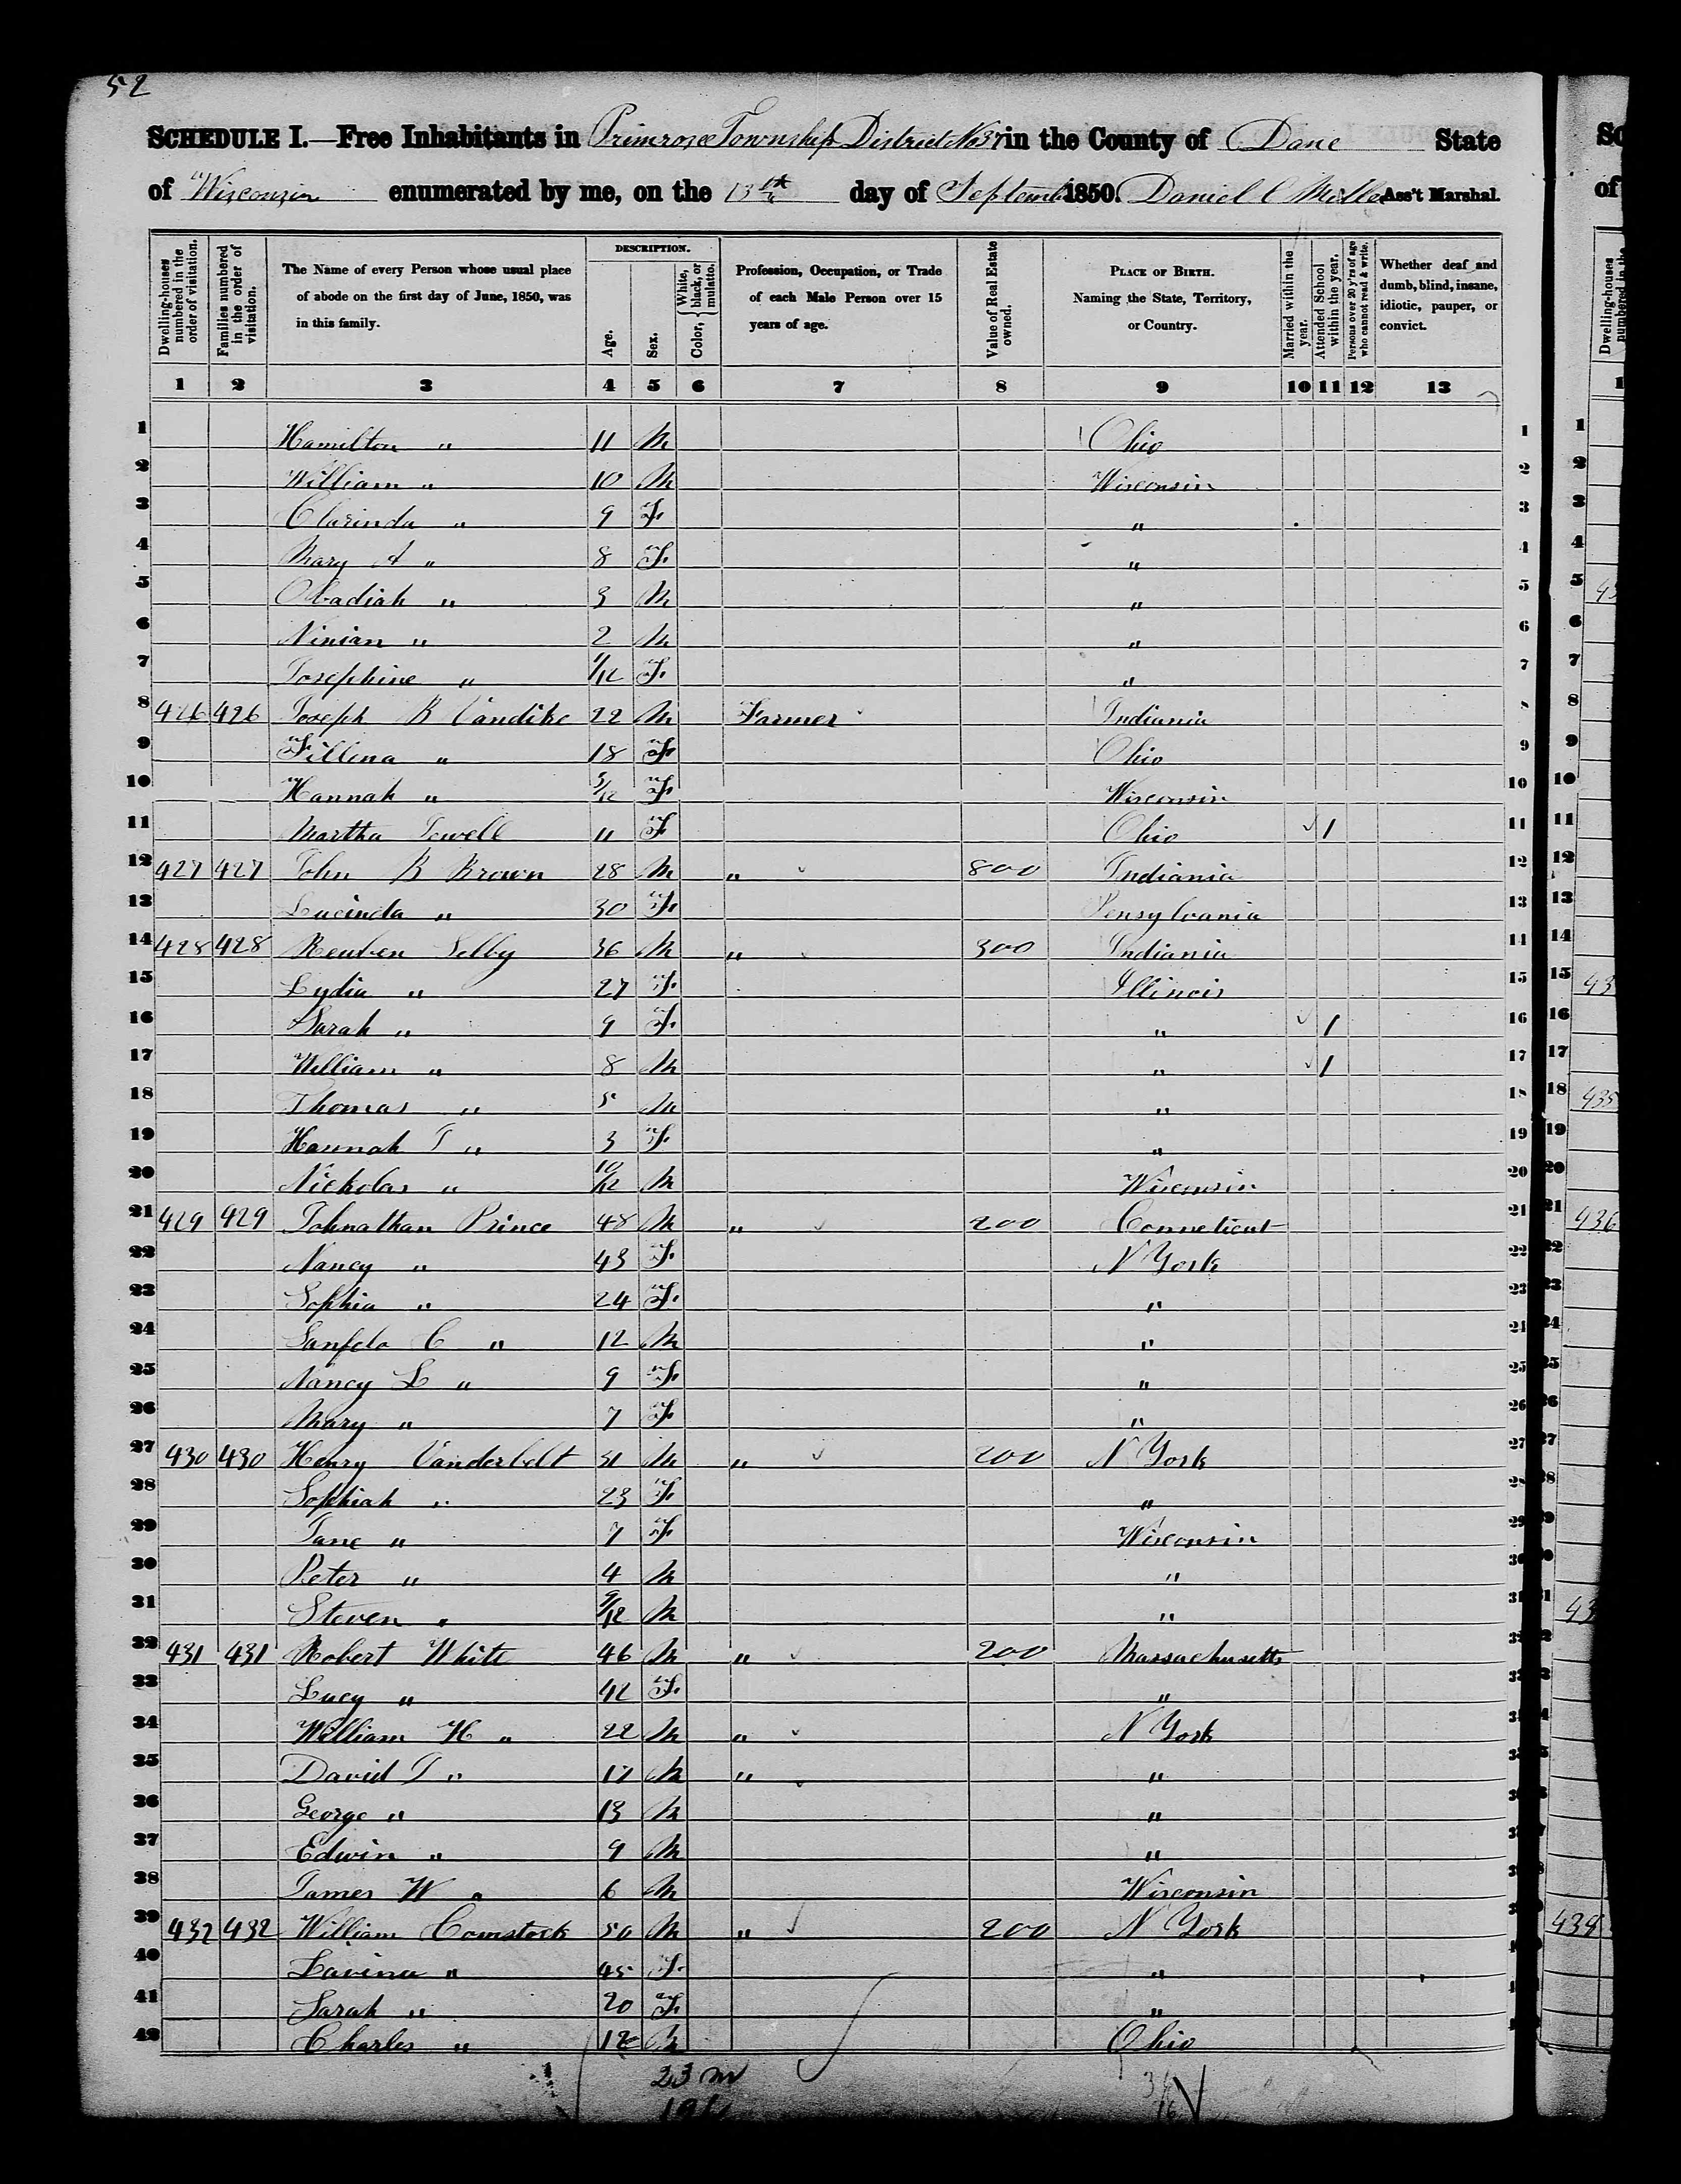 52
SCHEDULE I.—Free Inhabitants in Primrose Township District No 37 in the County of Dane State
of Wisconsin enumerated by me, on the 13th day of Septemb 1850. Daniel C Ass't Marshal.
Dwelling-houses numbered in the order of visitation.
Families numbered in the order of visitation.
The Name of every Person whose usual place of abode on the first day of June, 1850, was in this family.
DESCRIPTION.
Age.
Sex.
Color, { White, black, or mulatto.
Profession, Occupation, or Trade of each Male Person over 15 years of age.
Value of Real Estate owned.
PLACE OF BIRTH. Naming the State, Territory, or Country.
Married within the year.
Attended School within the year.
Persons over 20 y'rs of age who cannot read & write.
Whether deaf and dumb, blind, insane, idiotic, pauper, or convict.
1 2 3 4 5 6 7 8 9 10 11 12 13
1 Hamilton " 11 M Ohio 1
2 William " 10 M Wisconsin 2
3 Clarinda " 9 F " 3
4 Mary A " 8 F " 4
5 Obadiah " 3 M " 5
6 Ninian " 2 M " 6
7 Josephine " 1/12 F " 7
8 426 426 Joseph B Vandike 22 M Farmer Indiania 8
9 Fillena " 18 F Ohio 9
10 Hannah " 5/12 F Wisconsin 10
11 Martha Jewell 11 F Ohio ✓ 1 11
12 427 427 John B Brown 28 M " ✓ 800 Indiania 12
13 Lucinda " 30 F Pensylvania 13
14 428 428 Reuben Selby 36 M " ✓ 300 Indiania 14
15 Lydia " 27 F Illinois 15
16 Sarah " 9 F " ✓ 1 16
17 William " 8 M " ✓ 1 17
18 Thomas " 5 M " 18
19 Hannah J " 3 F " 19
20 Nickolas " 10/12 M Wisconsin 20
21 429 429 Johnathan Prince 48 M " ✓ 200 Conneticut 21
22 Nancy " 43 F N York 22
23 Sophia " 24 F " 23
24 C " 12 M " 24
25 Nancy L " 9 F " 25
26 Mary " 7 F " 26
27 430 430 Henry Vanderbelt 31 M " ✓ 200 N York 27
28 Sophiah " 23 F " 28
29 Jane " 7 F Wisconsin 29
30 Peter " 4 M " 30
31 Steven " 9/12 M " 31
32 431 431 Robert White 46 M " ✓ 200 Massachusetts
33 Lucy " 42 F "
34 William H " 22 M " ✓ N York
35 David J " 17 M " ✓ "
36 George " 13 M "
37 Edwin " 9 M "
38 James W " 6 M Wisconsin
39 432 432 William Comstock 50 M " ✓ 200 N York
40 Lavina " 45 F "
41 Sarah " 20 F "
42 Charles " 12 M Ohio
23 m